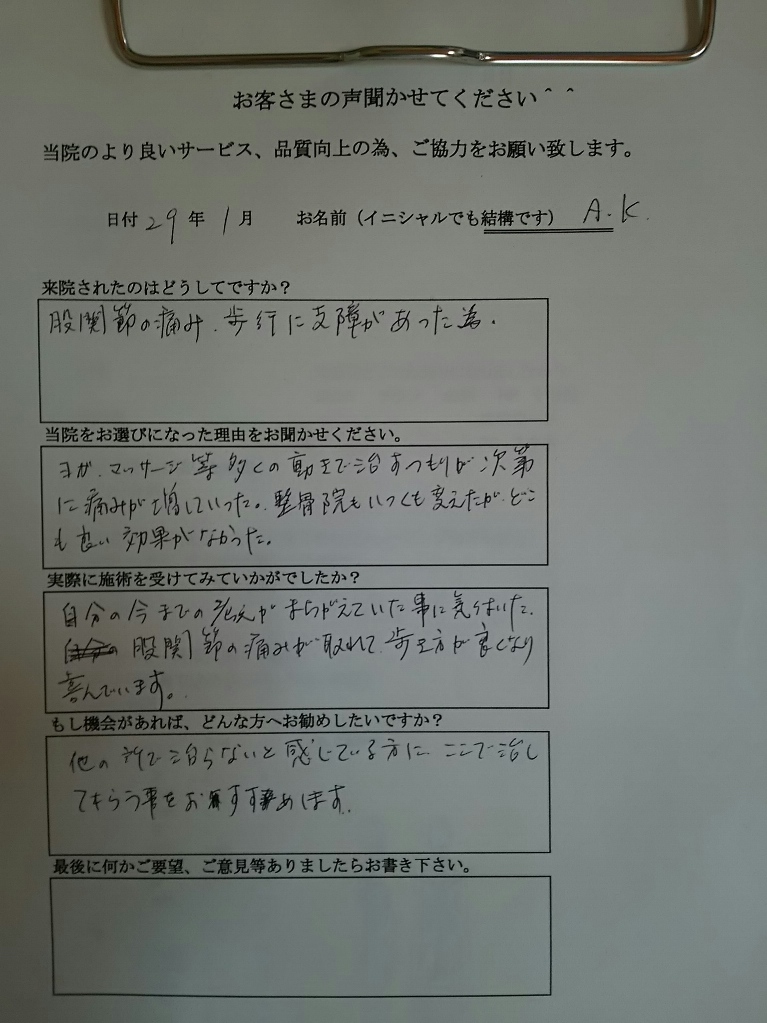 お客さまの声聞かせてください^ ^
当院のより良いサービス、品質向上の為、ご協力をお願い致します。
日付 29 年 1 月 お名前（イニシャルでも結構です） A.K.
来院されたのはどうしてですか？
股関節の痛み、歩行に支障があった為.
当院をお選びになった理由をお聞かせください。
ヨガ、マッサージ等多くの動きで治すつもりが次第
に痛みが増していった。整骨院もいくつも変えたが、どこ
も良い効果がなかった。
実際に施術を受けてみていかがでしたか？
自分の今までの がまちがえていた事に気付いた.
股関節の痛みが取れて、歩き方が良くなり
喜んでいます。
もし機会があれば、どんな方へお勧めしたいですか？
他の所で治らないと感じている方に、ここで治し
てもらう事をお すすめします.
最後に何かご要望、ご意見等ありましたらお書き下さい。